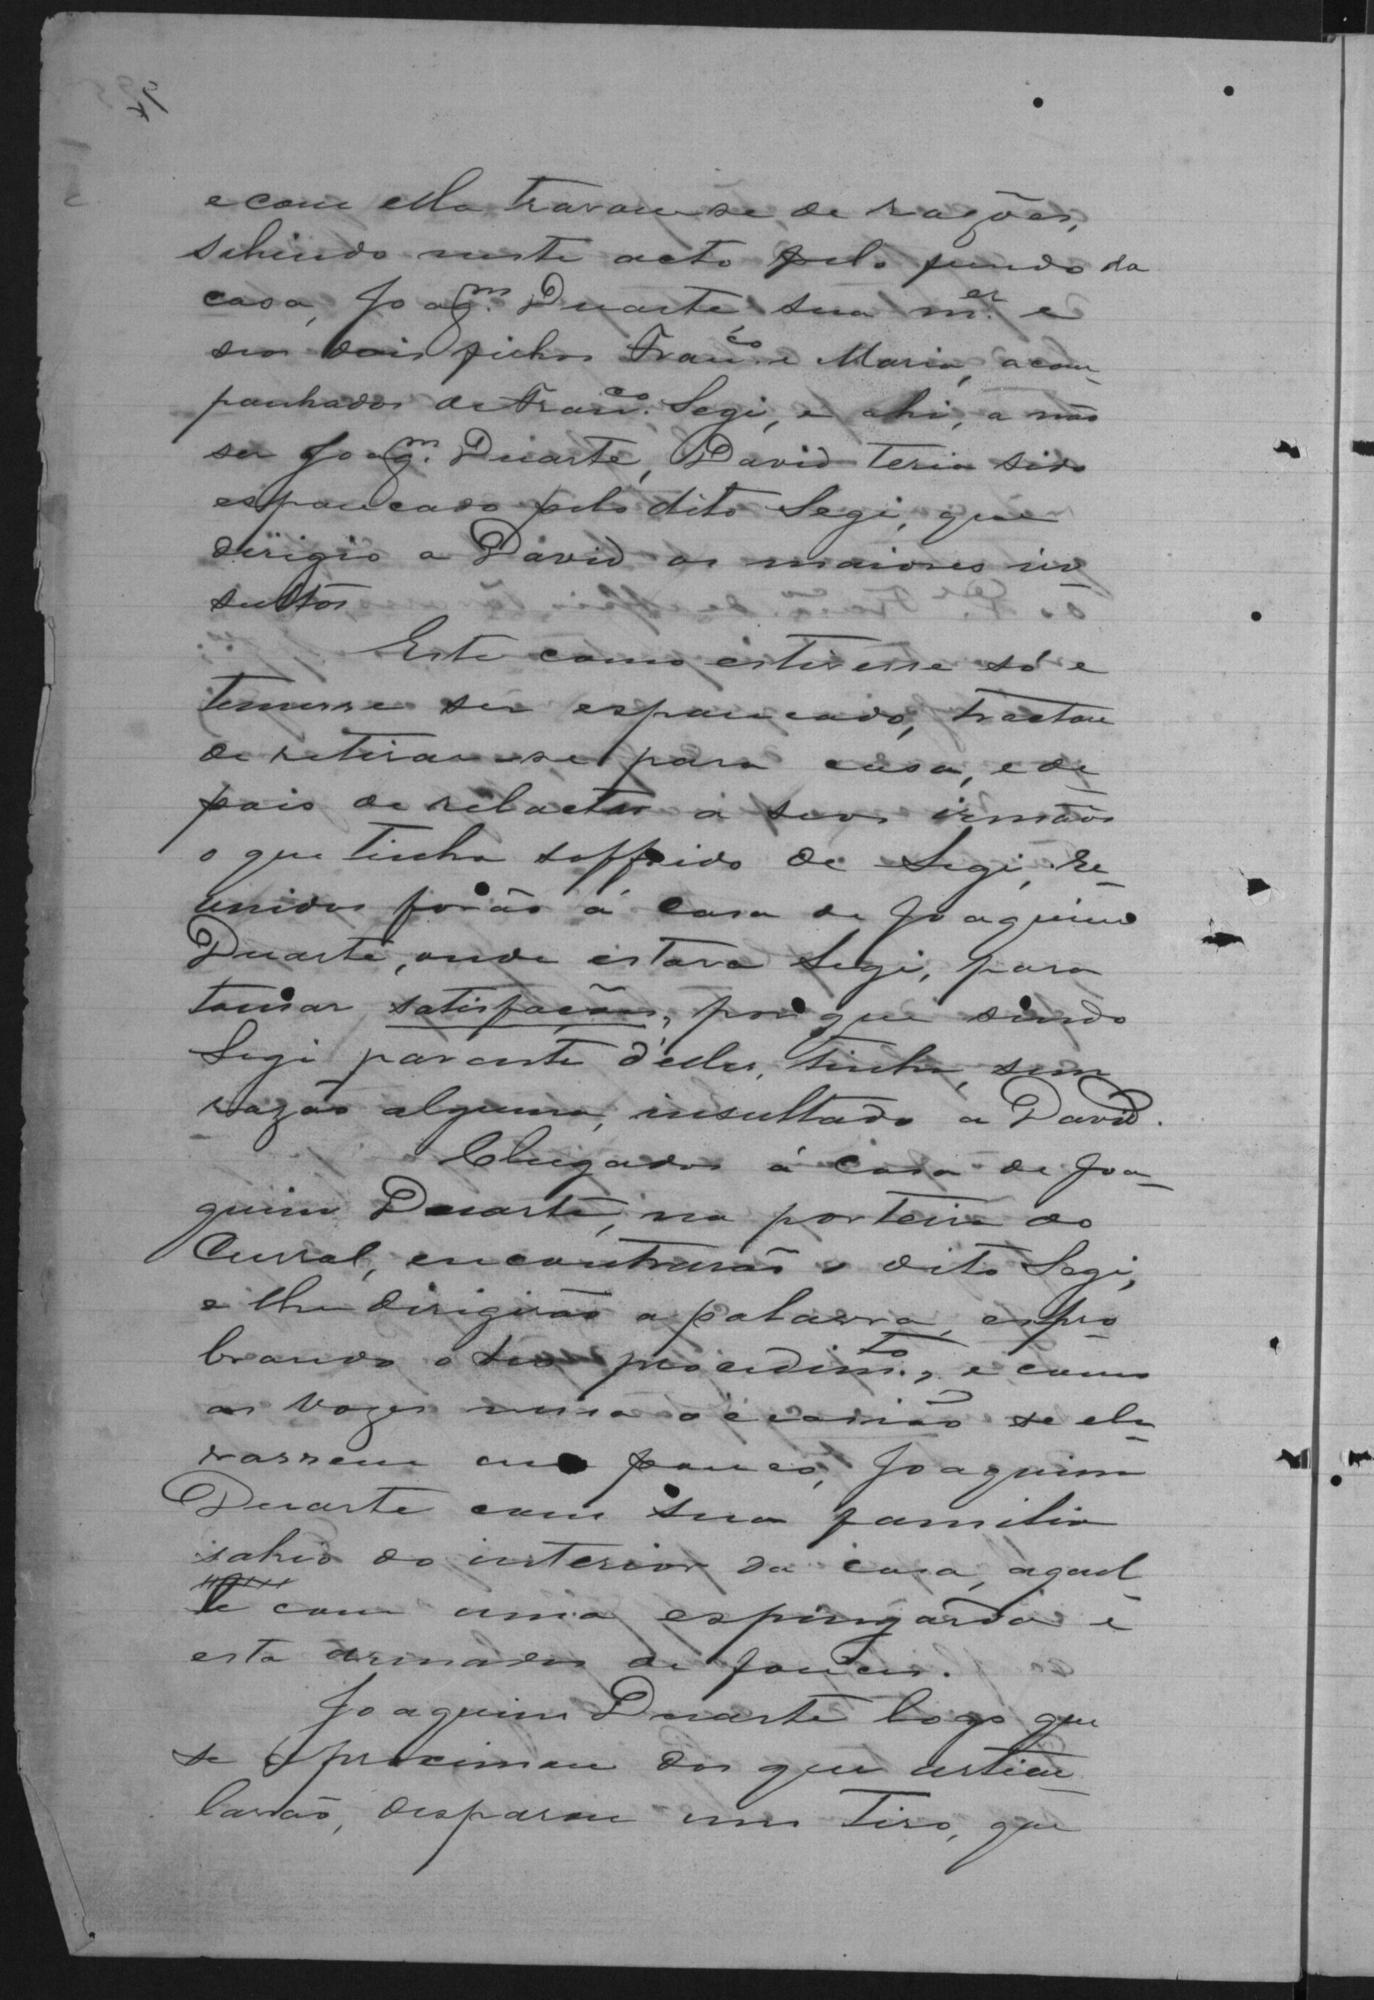 e com ella travou-se de razões,
sahindo neste acto pelo fundo da
casa, Joaqm. Duarte sua mer. e
seos dois filhos Franco. e Maria, acom-
panhados de Franco. Segi, e ahi, a não
ser Joaqm. Duarte, David teria sido
espancado pelo dito Segi, que
dirigio a David os maiores in-
sultos
Este como estivesse só e
temesse ser espancado, tractou
de retirar-se para casa, e de-
pois de relactar a seos irmãos
o que tinha soffrido de Segi, re-
unidos forão á casa de Joaquim
Duarte, onde estava Segi, para
tomar satisfações, porque sendo
Segi parente d'elles, tinha, sem
razão alguma, insultado a David.
Chegados á casa de Joa-
quim Duarte, na porteira do
Curral, encontrarão o dito Segi,
e lhe dirigirão a palavra, expro-
brando o seo procedimto., e como
as vozes nessa occasião se ele-
vassem um pouco, Joaquim
Duarte com sua familia
sahio do interior da casa, aquel-
le com uma espingarda e
esta armados de fouces.
Joaquim Duarte logo que
se aproximou dos que
larão, disparou um tiro, que